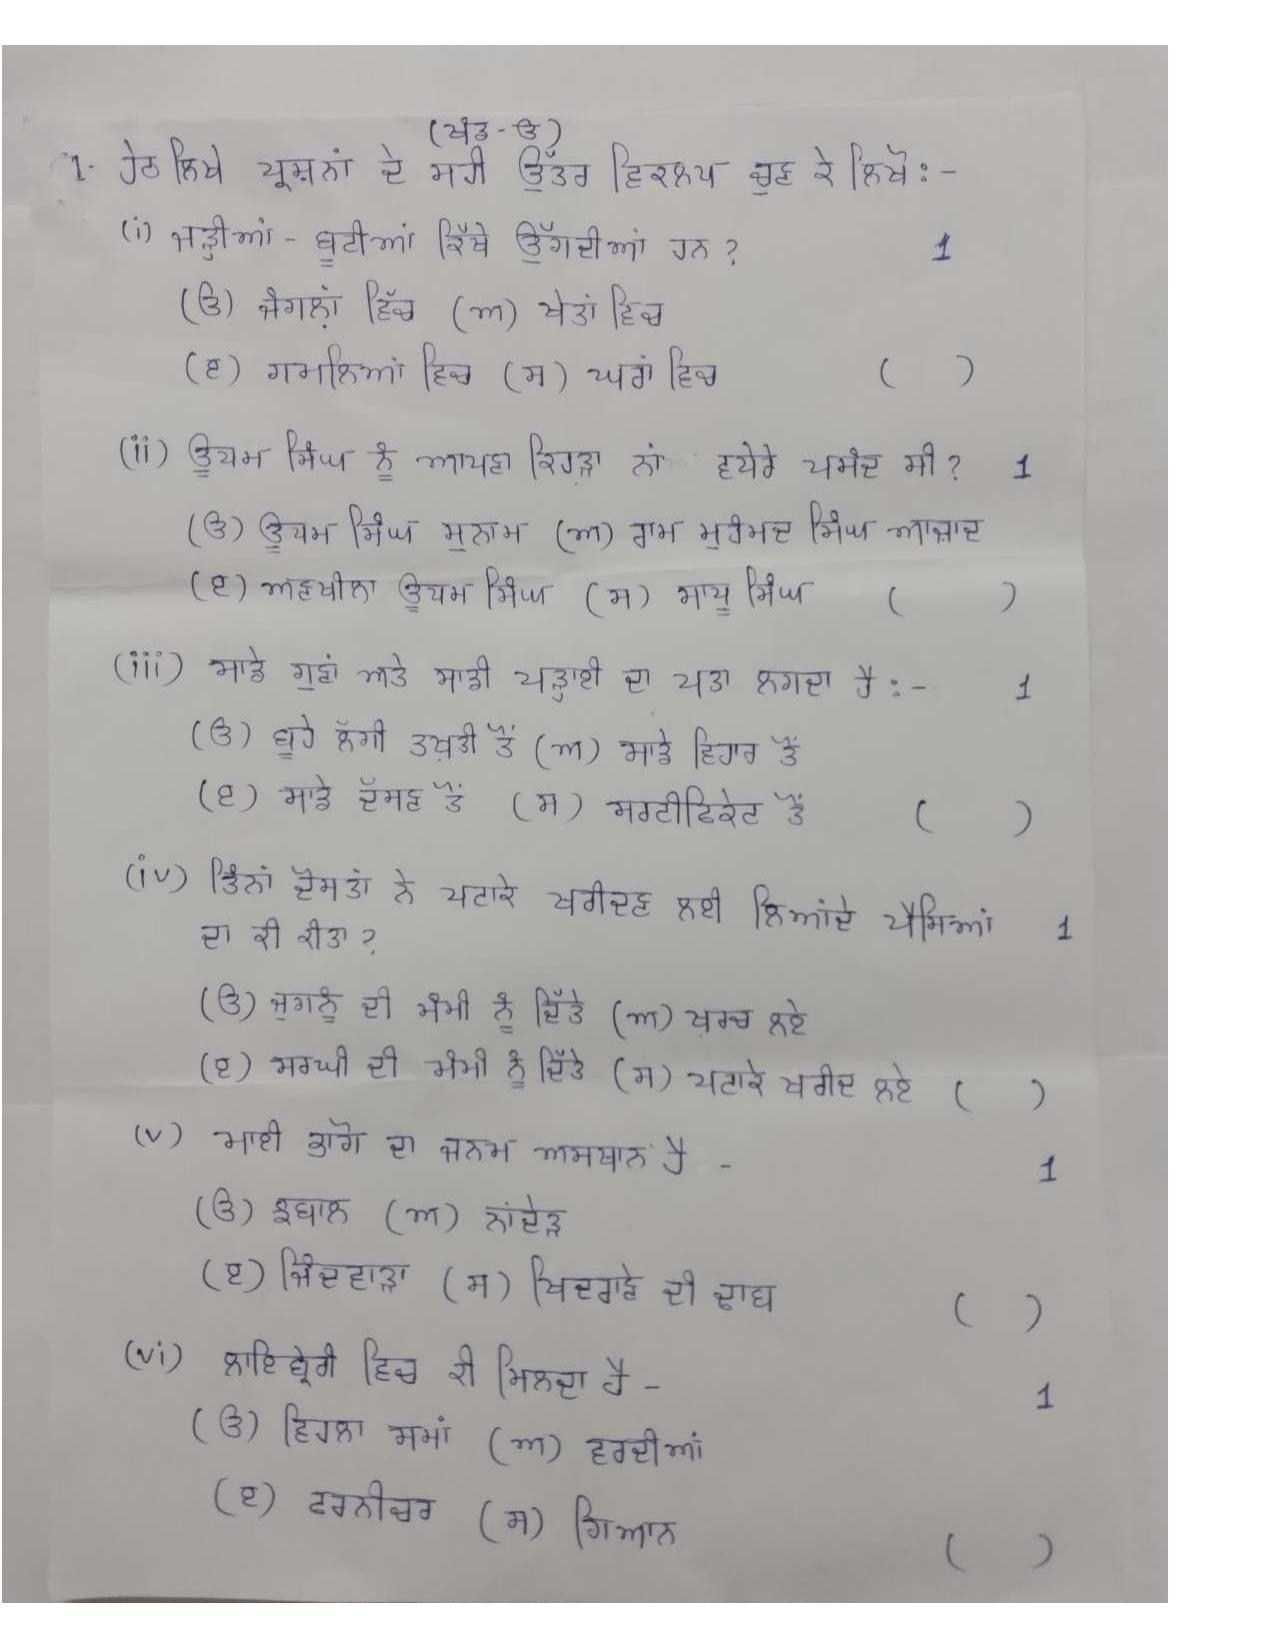 (ਖੰਡ-ੳ)
1. ਹੇਠ ਲਿਖੇ ਪ੍ਰਸ਼ਨਾਂ ਦੇ ਸਹੀ ਉੱਤਰ ਵਿਕਲਪ ਚੁਣ ਕੇ ਲਿਖੋ:-
(i) ਜੜ੍ਹੀਆਂ - ਬੂਟੀਆਂ ਕਿੱਥੇ ਉੱਗਦੀਆਂ ਹਨ? 1
(ੳ) ਜੰਗਲਾਂ ਵਿੱਚ (ਅ) ਖੇਤਾਂ ਵਿਚ
(ੲ) ਗਮਲਿਆਂ ਵਿਚ (ਸ) ਘਰਾਂ ਵਿਚ ( )
(ii) ਊਧਮ ਸਿੰਘ ਨੂੰ ਆਪਣਾ ਕਿਹੜਾ ਨਾਂ ਵਧੇਰੇ ਪਸੰਦ ਸੀ? 1
(ੳ) ਊਧਮ ਸਿੰਘ ਸੁਨਾਮ (ਅ) ਰਾਮ ਮੁਹੰਮਦ ਸਿੰਘ ਆਜ਼ਾਦ
(ੲ) ਅਣਖੀਲਾ ਊਧਮ ਸਿੰਘ (ਸ) ਸਾਧੂ ਸਿੰਘ ( )
(iii) ਸਾਡੇ ਗੁਣਾਂ ਅਤੇ ਸਾਡੀ ਪੜ੍ਹਾਈ ਦਾ ਪਤਾ ਲਗਦਾ ਹੈ:- 1
(ੳ) ਬੂਹੇ ਲੱਗੀ ਤਖ਼ਤੀ ਤੋਂ (ਅ) ਸਾਡੇ ਵਿਹਾਰ ਤੋਂ
(ੲ) ਸਾਡੇ ਦੱਸਣ ਤੋਂ (ਸ) ਸਰਟੀਫਿਕੇਟ ਤੋਂ ( )
(iv) ਤਿੰਨਾਂ ਦੋਸਤਾਂ ਨੇ ਪਟਾਕੇ ਖਰੀਦਣ ਲਈ ਲਿਆਂਦੇ ਪੈਸਿਆਂ 1
ਦਾ ਕੀ ਕੀਤਾ?
(ੳ) ਜੁਗਨੂੰ ਦੀ ਮੰਮੀ ਨੂੰ ਦਿੱਤੇ (ਅ) ਖ਼ਰਚ ਲਏ
(ੲ) ਸਰਘੀ ਦੀ ਮੰਮੀ ਨੂੰ ਦਿੱਤੇ (ਸ) ਪਟਾਕੇ ਖਰੀਦ ਲਏ ( )
(v) ਮਾਈ ਭਾਗੋ ਦਾ ਜਨਮ ਅਸਥਾਨ ਹੈ - 1
(ੳ) ਝਬਾਲ (ਅ) ਨਾਂਦੇੜ
(ੲ) ਜਿੰਦਵਾੜਾ (ਸ) ਖਿਦਰਾਣੇ ਦੀ ਢਾਬ ( )
(vi) ਲਾਇਬ੍ਰੇਰੀ ਵਿਚ ਕੀ ਮਿਲਦਾ ਹੈ - 1
(ੳ) ਵਿਹਲਾ ਸਮਾਂ (ਅ) ਵਰਦੀਆਂ
(ੲ) ਫਰਨੀਚਰ (ਸ) ਗਿਆਨ ( )